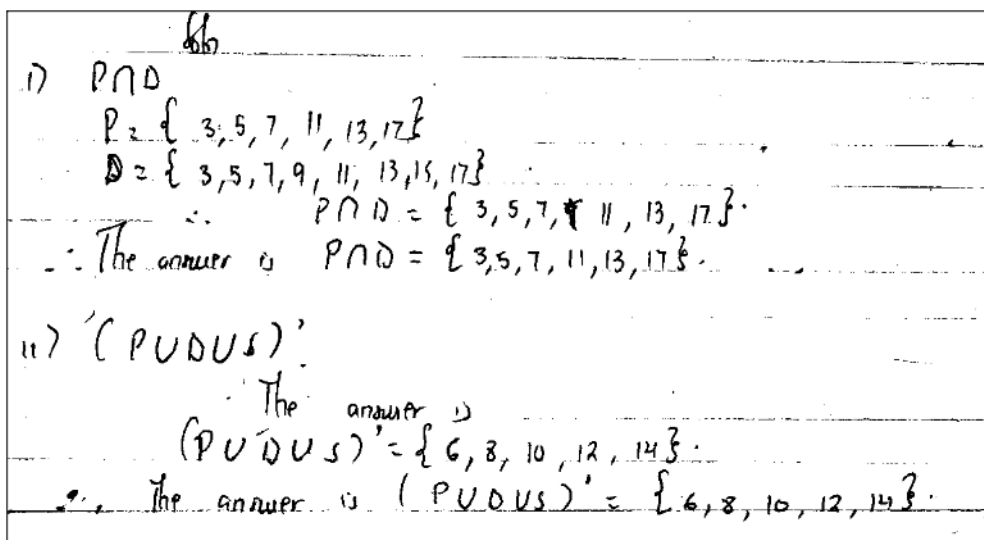 Soln
i) P∩D
P = { 3, 5, 7, 11, 13, 17}
D = { 3, 5, 7, 9, 11, 13, 15, 17}
∴ P∩D = { 3, 5, 7, 11, 13, 17}.
∴ The answer is P∩D = { 3, 5, 7, 11, 13, 17}.
ii) (PUDUS)'
The answer is
(PUDUS)' = { 6, 8, 10, 12, 14}.
∴ The answer is (PUDUS)' = { 6, 8, 10, 12, 14}.